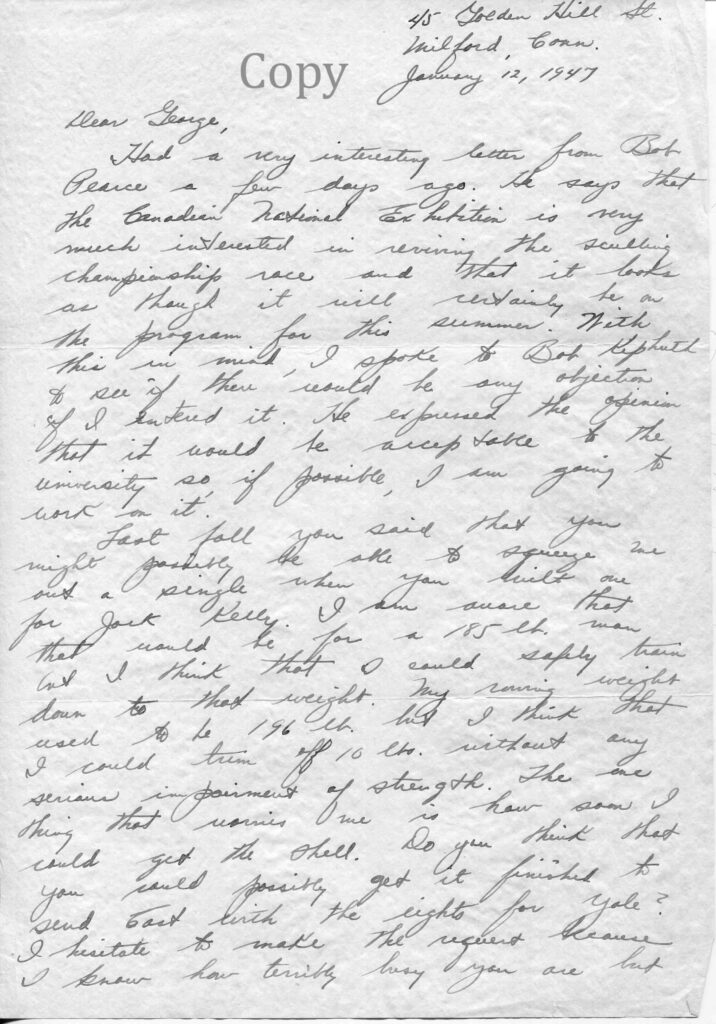 45 Golden Hill St.
Milford, Conn.
Copy
January 12, 1947
Dear George,
Had a very interesting letter from Bob
Pearce a few days ago. He says that
the Canadian National Exhibition is very
much interested in reviving the sculling
championship race and that it looks
as though it will certainly be on
the program for this summer. With
this in mind, I spoke to Bob Kiphuth
to see if there would be any objection
if I entered it. He expressed the opinion
that it would be acceptable to the
university so, if possible, I am going to
work on it.
Last fall you said that you
might possibly be able to squeeze me
out a single when you built one
for Jack Kelly. I am aware that
that would be for a 185 lb. man
but I think that I could safely train
down to that weight. My rowing weight
used to be 196 lb. but I think that
I could trim off 10 lbs. without any
serious impairment of strength. The one
thing that worries me is how soon I
could get the shell. Do you think that
you could possibly get it finished to
send East with the eights for Yale?
I hesitate to make the request because
I know how terribly busy you are but